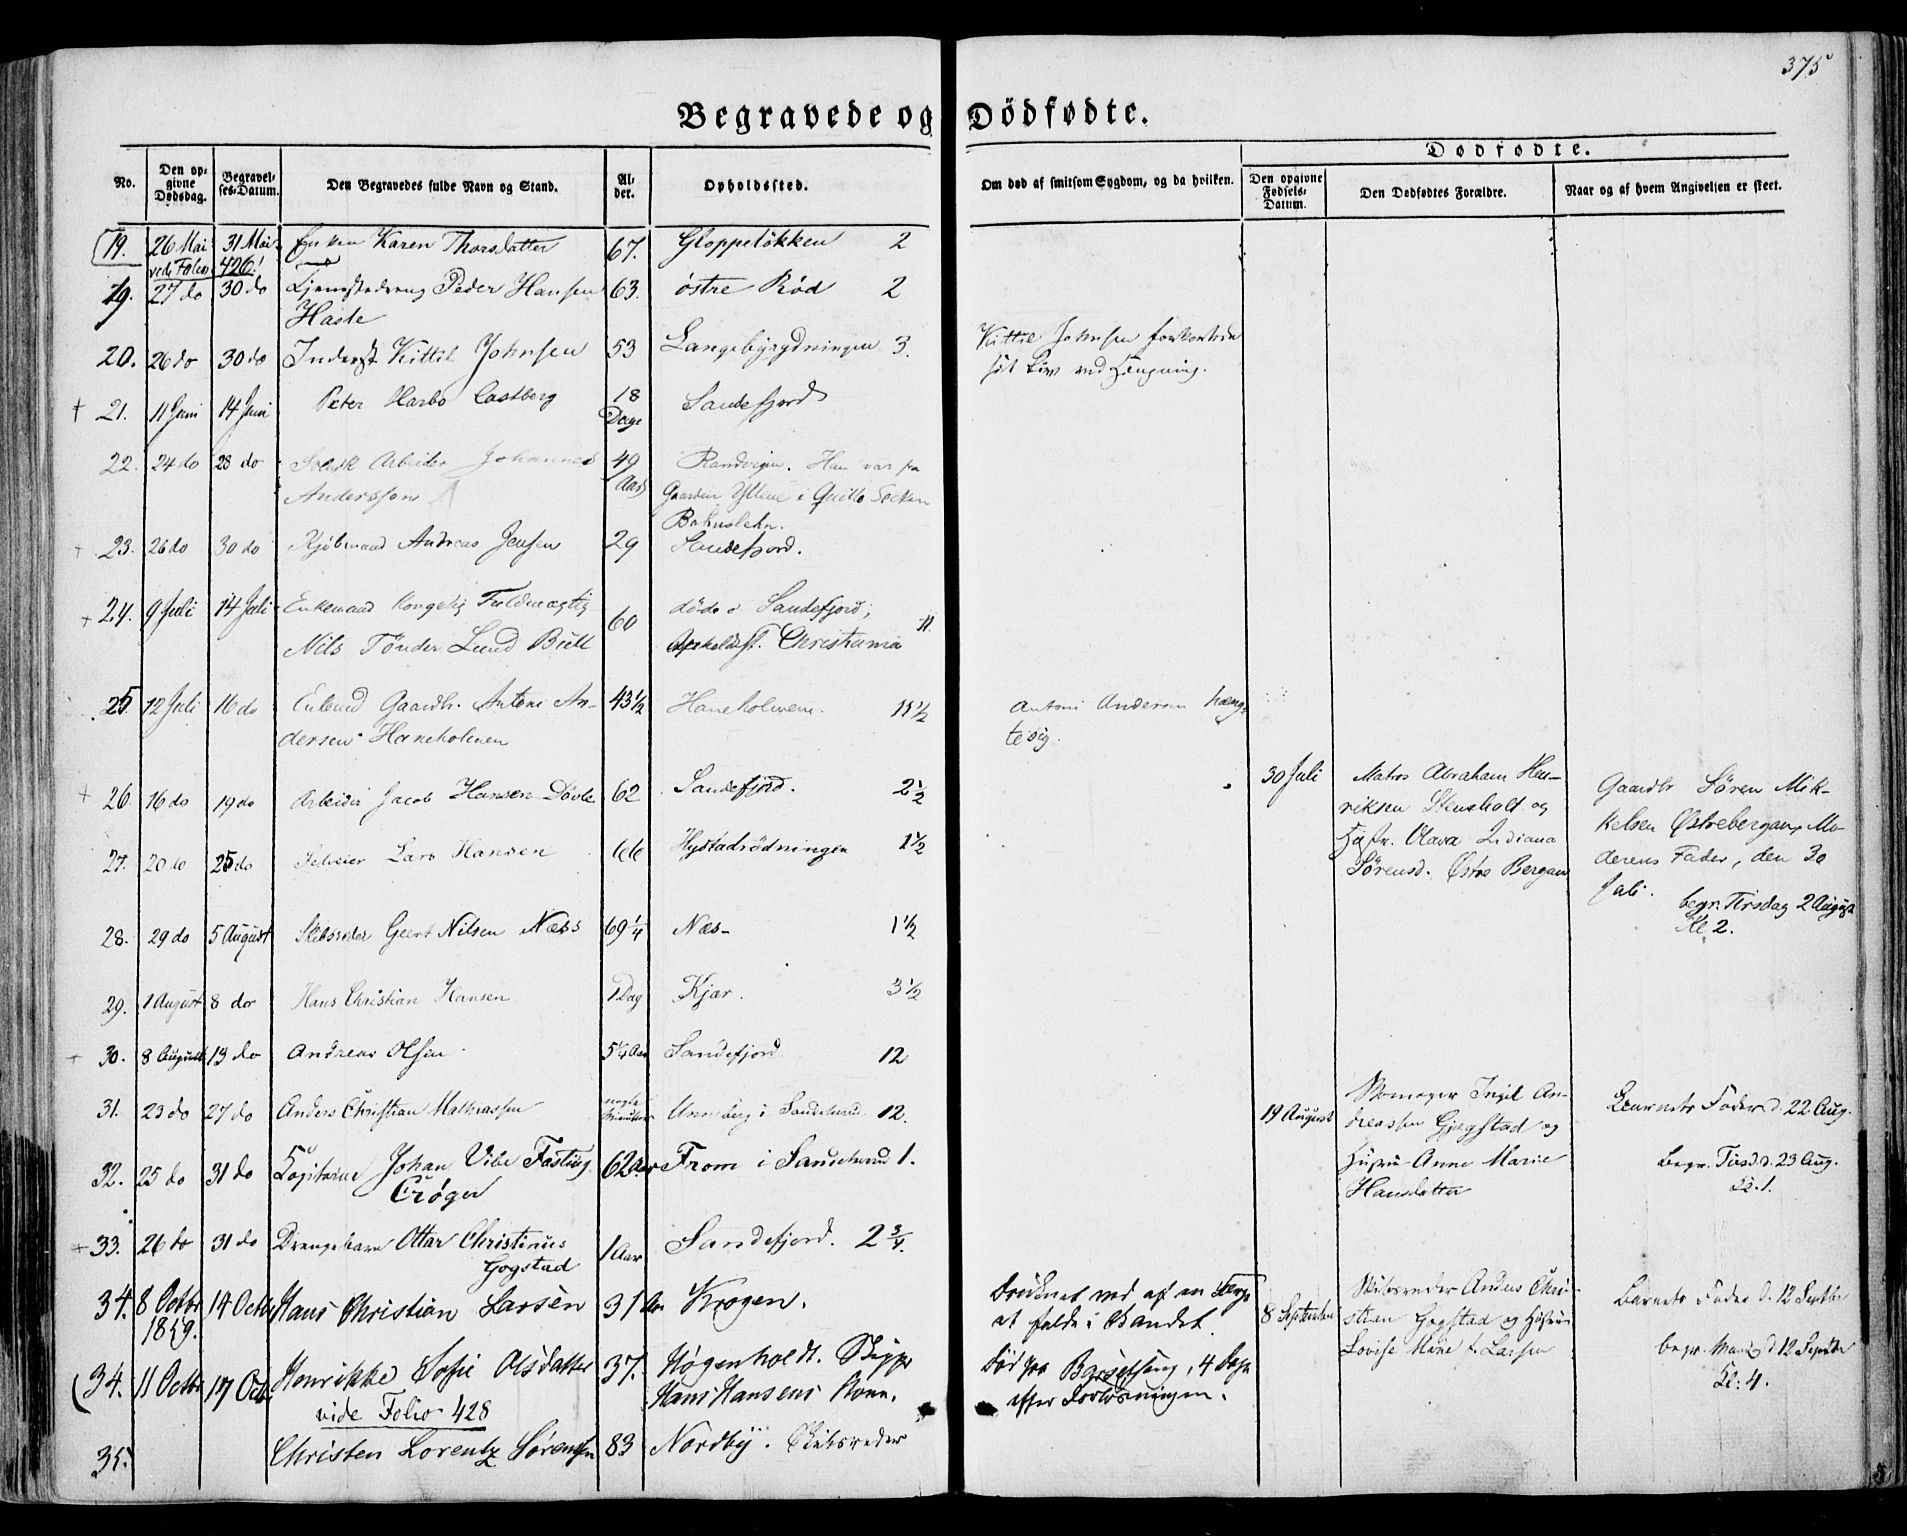 375
Begravede og Dödfødte.
No.
Den op-
givne
Dødsdag.
Begravel-
ses-Datum.
Den Begravedes fulde Navn og Stand.
Al-
der.
Opholdssted.
Om død af smitsom Sygdom, og da hvilken.
Dødfødte.
Den opgivne
Fødsels-
Datum.
Den Dødfødtes Forældre.
Naar og af hvem Angivelsen er skeet.
19. 26 Mai 31 Mai Enken Karen Thorsdatter 67. Gloppeløkken 2
vide Folio 426!
19. 27 do 30 do Peder Hansen 63. østre Rød 2
Hasle
20. 26 do 30 do Inderst Kittil Johnsen 53 Langebyrgdningen 3.
Kittil Johnsen forkortede
sit Liv ved Hængning.
21. 11 Juni 14 Juni Peter Harbo Castberg 18 Sandefjord
Dage
22. 24 do 28 do Svensk Arbeider Johannes 49 Randvigen. Han var fra
Andersson Aar Gaarden i Quille Socken
Bohuslehn.
23. 26 do 30 do Kjøbmand Andreas Jensen 29 Sandefjord.
24. 9 Juli 14 Juli Enkemand Kongelig Fuldmægtig 60 døde i Sandefjord;
Nils Tönder Lund Bull Opholdsst. Christiania 11.
25. 12 Juli 16 do Enkemd Gaardbr. Antoni An- 43 1/2 Haneholmen. 11 1/2
dersen Haneholmen
Antoni Andersen hæng-
te sig.
26. 16 do 19 do Arbeider Jacob Hansen Døvle 62 Sandefjord. 2 1/2
30 Juli Matros Abraham Hen-
riksen Stensholt og
Hustr. Olava Indiana
Sörensd. Östre Bergan
Gaardbr Sören Mik-
kelsen Østrebergan, Mo-
derens Fader, den 30
Juli.
begr. Tirsdag 2 August
Kl 2.
27. 20 do 25 do Selveier Lars Hansen 66 Hystadrödningen 1 1/2
28. 29 do 5 August Skibsreder Geert Nilsen Næss 69 1/4 Næs- 1 1/2
29. 1 August 8 do Hans Christian Hansen 1 Dag Kjær. 3 1/2
30. 8 August 13 do Andreas Olsen 5 1/4 Aar Sandefjord 12
31. 23 do 27 do Anders Christian Mathiassen nogle Minutter Unneberg i Sandeherred. 12.
19 August Skomager Ingil An-
dreassen Gjøgstad og
Hustru Anne Marie
Hansdatter
Barnets Fader d. 22 Aug.
Begr. Tirsd. d. 23 Aug.
Kl. 1.
32. 25 do 31 do Kapitaine Johan Vibe Fasting 62 Aar From i Sandeherred 1.
Crøger
33. 26 do 31 do Drengebarn Ottar Christinus 1 Aar Sandefjord. 2 3/4.
Gogstad
34. 8 Octbr 14 Octbr Hans Christian Larsen 31 Aar Krogen.
1859.
Druknet ved af en Færge
at falde i Vandet.
8 September Skibsreder Anders Chri-
stian Gogstad og Hustru
Lovise Mine f. Larsen
Barnets Fader d. 12 Septbr
begr. Mand. d 12 Septbr
Kl: 4.
34. 11 Octbr 17 Octbr Henrikke Sofie Olsdatter 37. Högenholdt. Skippr
vide Folio 428 Hans Hansens Kone.
Død paa Barselseng, 4 Dage
efter Forløsningen.
35. Christen Lorentz Sörensen 83 Nordby. Skibsreder